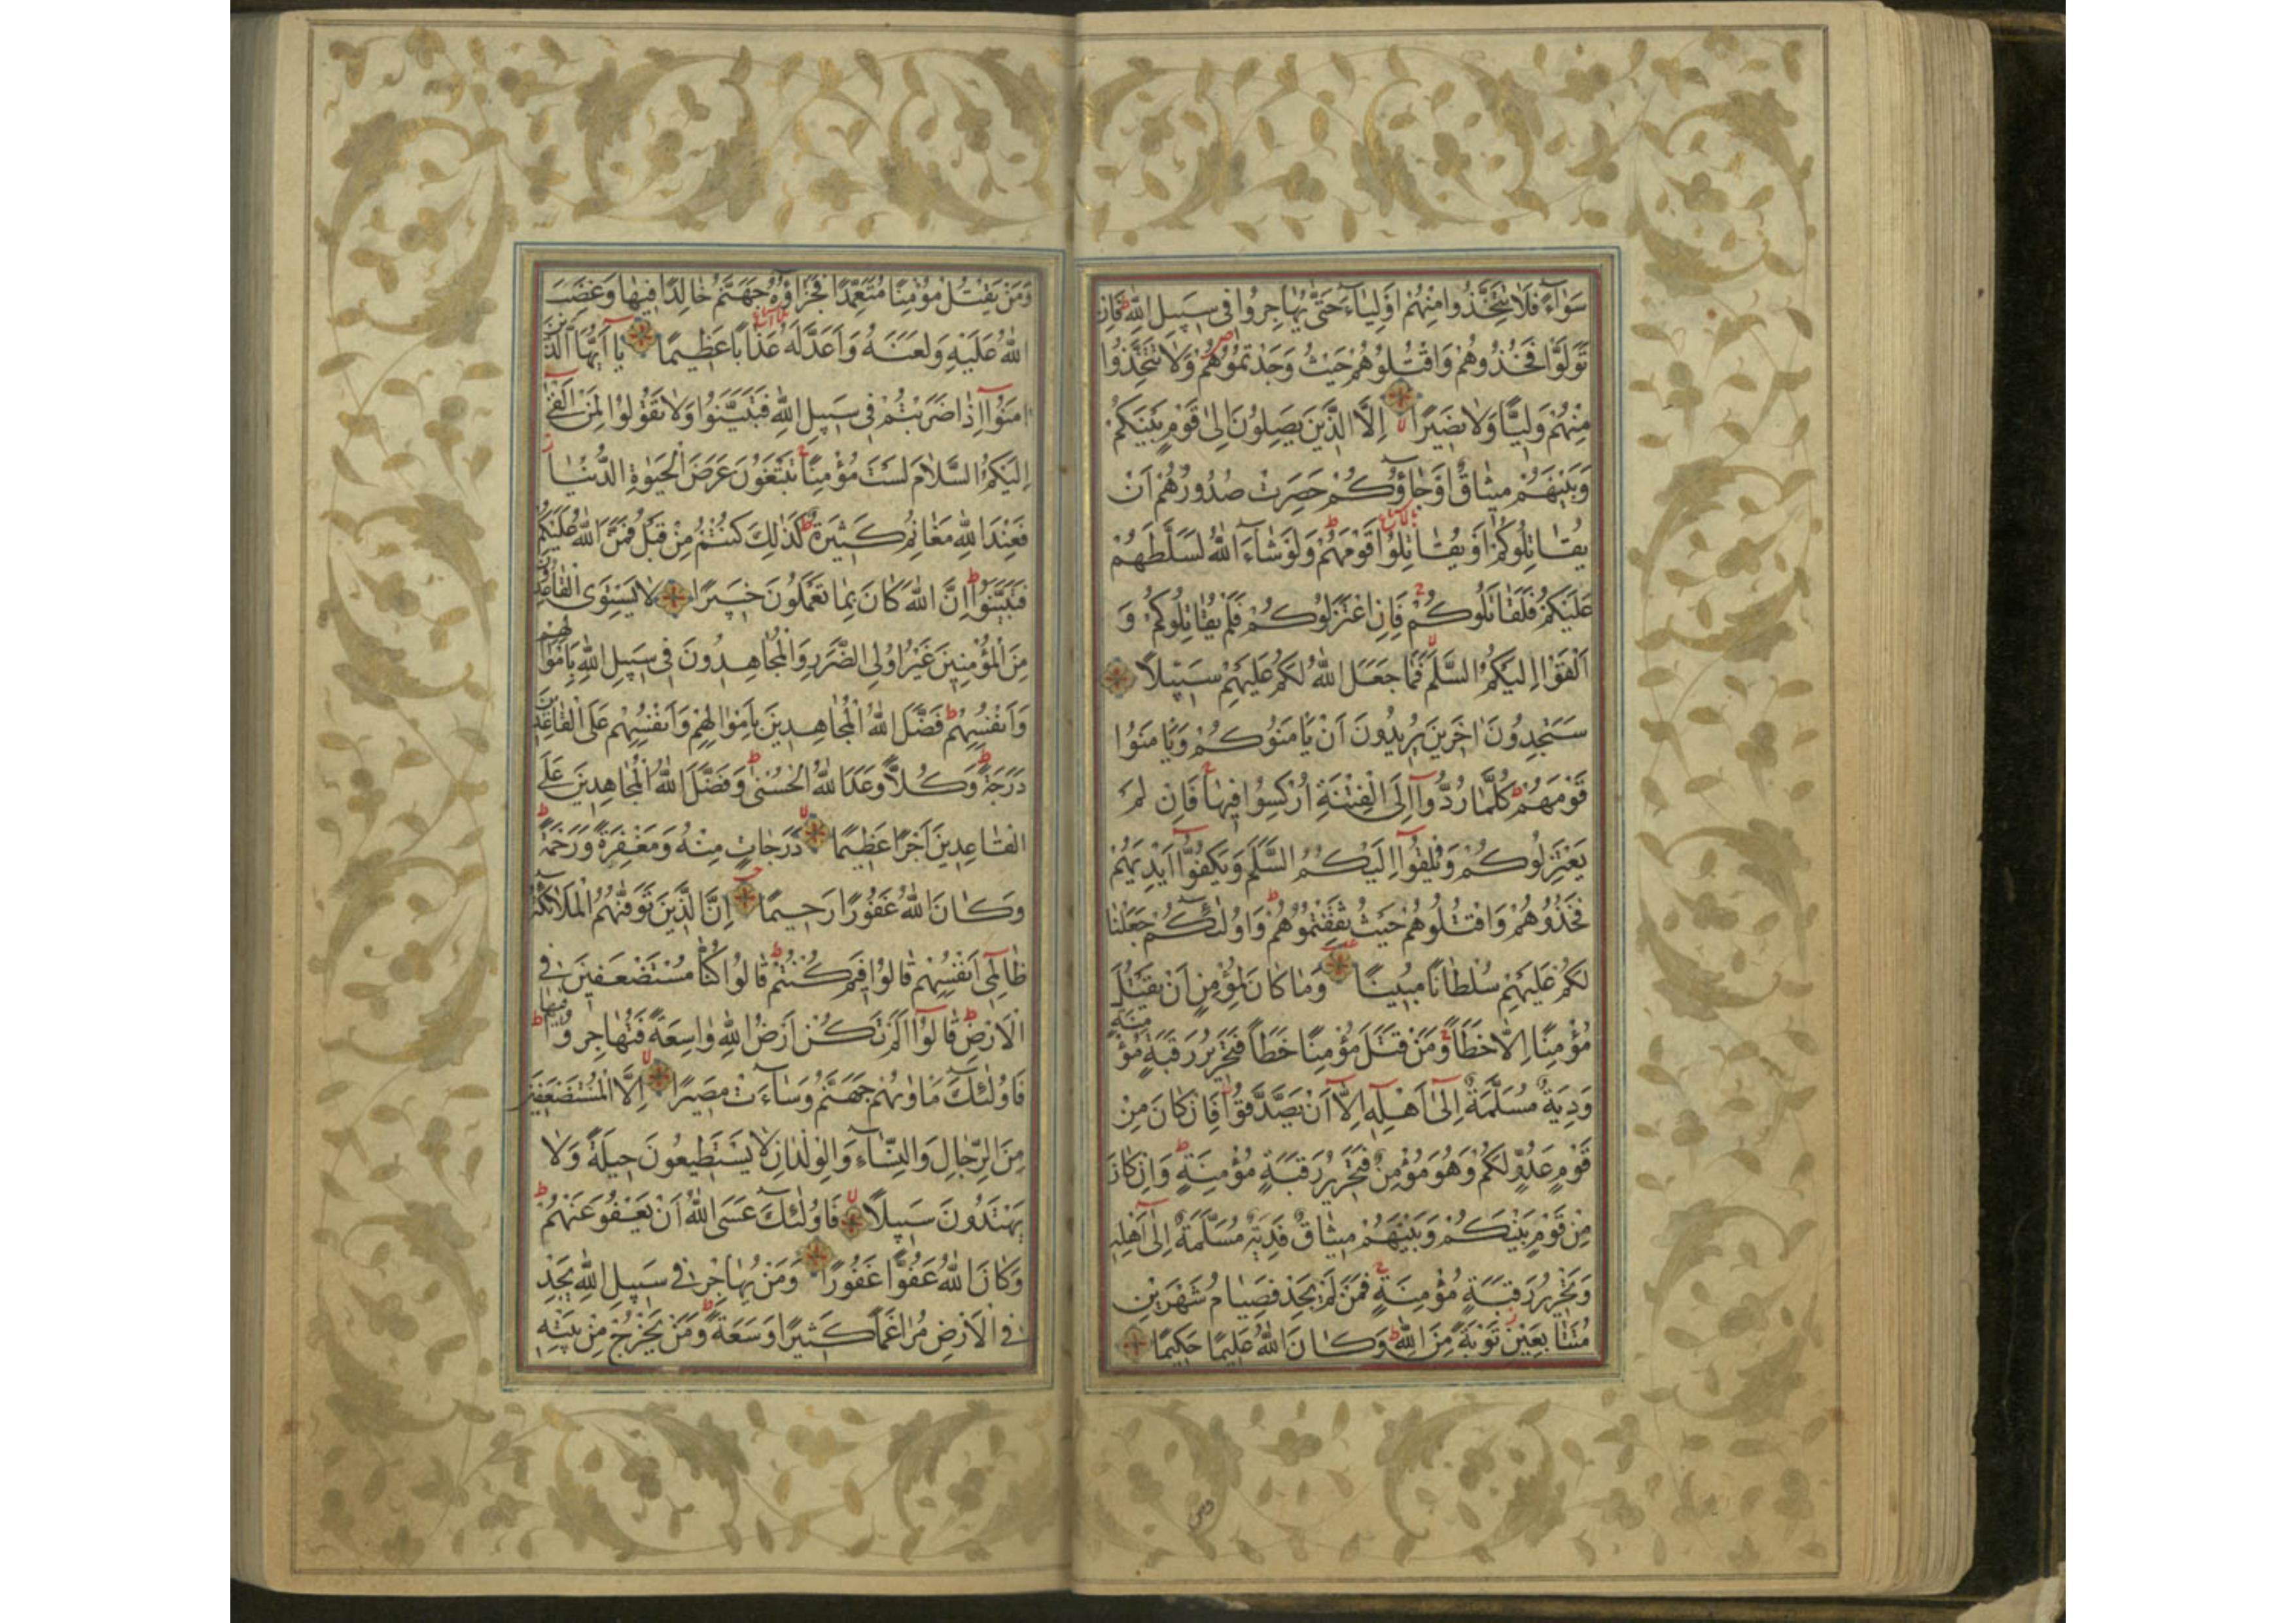 سَوَآءً فَلَا تَتَّخِذُوا مِنْهُمْ اَوْلِيَآءَ حَتّٰى يُهَاجِرُوا فِى سَبِيلِ اللّٰهِ فَاِنْ
تَوَلَّوْا فَخُذُوهُمْ وَاقْتُلُوهُمْ حَيْثُ وَجَدْتُمُوهُمْ وَلَا تَتَّخِذُوا
مِنْهُمْ وَلِيًّا وَلَا نَصِيرًا اِلَّا الَّذِينَ يَصِلُونَ اِلٰى قَوْمٍ بَيْنَكُمْ
وَبَيْنَهُمْ مِيثَاقٌ اَوْ جَاؤُكُمْ حَصِرَتْ صُدُورُهُمْ اَنْ
يُقَاتِلُوكُمْ اَوْ يُقَاتِلُوا قَوْمَهُمْ وَلَوْ شَآءَ اللّٰهُ لَسَلَّطَهُمْ
عَلَيْكُمْ فَلَقَاتَلُوكُمْ فَاِنِ اعْتَزَلُوكُمْ فَلَمْ يُقَاتِلُوكُمْ وَ
اَلْقَوْا اِلَيْكُمُ السَّلَمَ فَمَا جَعَلَ اللّٰهُ لَكُمْ عَلَيْهِمْ سَبِيلًا
سَتَجِدُونَ اٰخَرِينَ يُرِيدُونَ اَنْ يَاْمَنُوكُمْ وَيَاْمَنُوا
قَوْمَهُمْ كُلَّمَا رُدُّوا اِلَى الْفِتْنَةِ اُرْكِسُوا فِيهَا فَاِنْ لَمْ
يَعْتَزِلُوكُمْ وَيُلْقُوا اِلَيْكُمُ السَّلَمَ وَيَكُفُّوا اَيْدِيَهُمْ
فَخُذُوهُمْ وَاقْتُلُوهُمْ حَيْثُ ثَقِفْتُمُوهُمْ وَاُولٰئِكُمْ جَعَلْنَا
لَكُمْ عَلَيْهِمْ سُلْطَانًا مُبِينًا وَمَا كَانَ لِمُؤْمِنٍ اَنْ يَقْتُلَ
مُؤْمِنًا اِلَّا خَطَاً وَمَنْ قَتَلَ مُؤْمِنًا خَطَاً فَتَحْرِيرُ رَقَبَةٍ مُؤْمِنَةٍ
وَدِيَةٌ مُسَلَّمَةٌ اِلٰى اَهْلِهِ اِلَّا اَنْ يَصَّدَّقُوا فَاِنْ كَانَ مِنْ
قَوْمٍ عَدُوٍّ لَكُمْ وَهُوَ مُؤْمِنٌ فَتَحْرِيرُ رَقَبَةٍ مُؤْمِنَةٍ وَاِنْ كَانَ
مِنْ قَوْمٍ بَيْنَكُمْ وَبَيْنَهُمْ مِيثَاقٌ فَدِيَةٌ مُسَلَّمَةٌ اِلٰى اَهْلِهِ
وَتَحْرِيرُ رَقَبَةٍ مُؤْمِنَةٍ فَمَنْ لَمْ يَجِدْ فَصِيَامُ شَهْرَيْنِ
مُتَتَابِعَيْنِ تَوْبَةً مِنَ اللّٰهِ وَكَانَ اللّٰهُ عَلِيمًا حَكِيمًا
وَمَنْ يَقْتُلْ مُؤْمِنًا مُتَعَمِّدًا فَجَزَاؤُهُ جَهَنَّمُ خَالِدًا فِيهَا وَغَضِبَ
اللّٰهُ عَلَيْهِ وَلَعَنَهُ وَاَعَدَّ لَهُ عَذَابًا عَظِيمًا يَا اَيُّهَا الَّذِينَ
اٰمَنُوا اِذَا ضَرَبْتُمْ فِى سَبِيلِ اللّٰهِ فَتَبَيَّنُوا وَلَا تَقُولُوا لِمَنْ اَلْقٰى
اِلَيْكُمُ السَّلَامَ لَسْتَ مُؤْمِنًا تَبْتَغُونَ عَرَضَ الْحَيٰوةِ الدُّنْيَا
فَعِنْدَ اللّٰهِ مَغَانِمُ كَثِيرَةٌ كَذٰلِكَ كُنْتُمْ مِنْ قَبْلُ فَمَنَّ اللّٰهُ عَلَيْكُمْ
فَتَبَيَّنُوا اِنَّ اللّٰهَ كَانَ بِمَا تَعْمَلُونَ خَبِيرًا لَا يَسْتَوِى الْقَاعِدُونَ
مِنَ الْمُؤْمِنِينَ غَيْرُ اُولِى الضَّرَرِ وَالْمُجَاهِدُونَ فِى سَبِيلِ اللّٰهِ بِاَمْوَالِهِمْ
وَاَنْفُسِهِمْ فَضَّلَ اللّٰهُ الْمُجَاهِدِينَ بِاَمْوَالِهِمْ وَاَنْفُسِهِمْ عَلَى الْقَاعِدِينَ
دَرَجَةً وَكُلًّا وَعَدَ اللّٰهُ الْحُسْنٰى وَفَضَّلَ اللّٰهُ الْمُجَاهِدِينَ عَلَى
الْقَاعِدِينَ اَجْرًا عَظِيمًا دَرَجَاتٍ مِنْهُ وَمَغْفِرَةً وَرَحْمَةً
وَكَانَ اللّٰهُ غَفُورًا رَحِيمًا اِنَّ الَّذِينَ تَوَفّٰيهُمُ الْمَلَائِكَةُ
ظَالِمِى اَنْفُسِهِمْ قَالُوا فِيمَ كُنْتُمْ قَالُوا كُنَّا مُسْتَضْعَفِينَ فِى
الْاَرْضِ قَالُوا اَلَمْ تَكُنْ اَرْضُ اللّٰهِ وَاسِعَةً فَتُهَاجِرُوا فِيهَا
فَاُولٰئِكَ مَاْوٰيهُمْ جَهَنَّمُ وَسَآءَتْ مَصِيرًا اِلَّا الْمُسْتَضْعَفِينَ
مِنَ الرِّجَالِ وَالنِّسَآءِ وَالْوِلْدَانِ لَا يَسْتَطِيعُونَ حِيلَةً وَلَا
يَهْتَدُونَ سَبِيلًا فَاُولٰئِكَ عَسَى اللّٰهُ اَنْ يَعْفُوَ عَنْهُمْ
وَكَانَ اللّٰهُ عَفُوًّا غَفُورًا وَمَنْ يُهَاجِرْ فِى سَبِيلِ اللّٰهِ يَجِدْ
فِى الْاَرْضِ مُرَاغَمًا كَثِيرًا وَسَعَةً وَمَنْ يَخْرُجْ مِنْ بَيْتِهِ